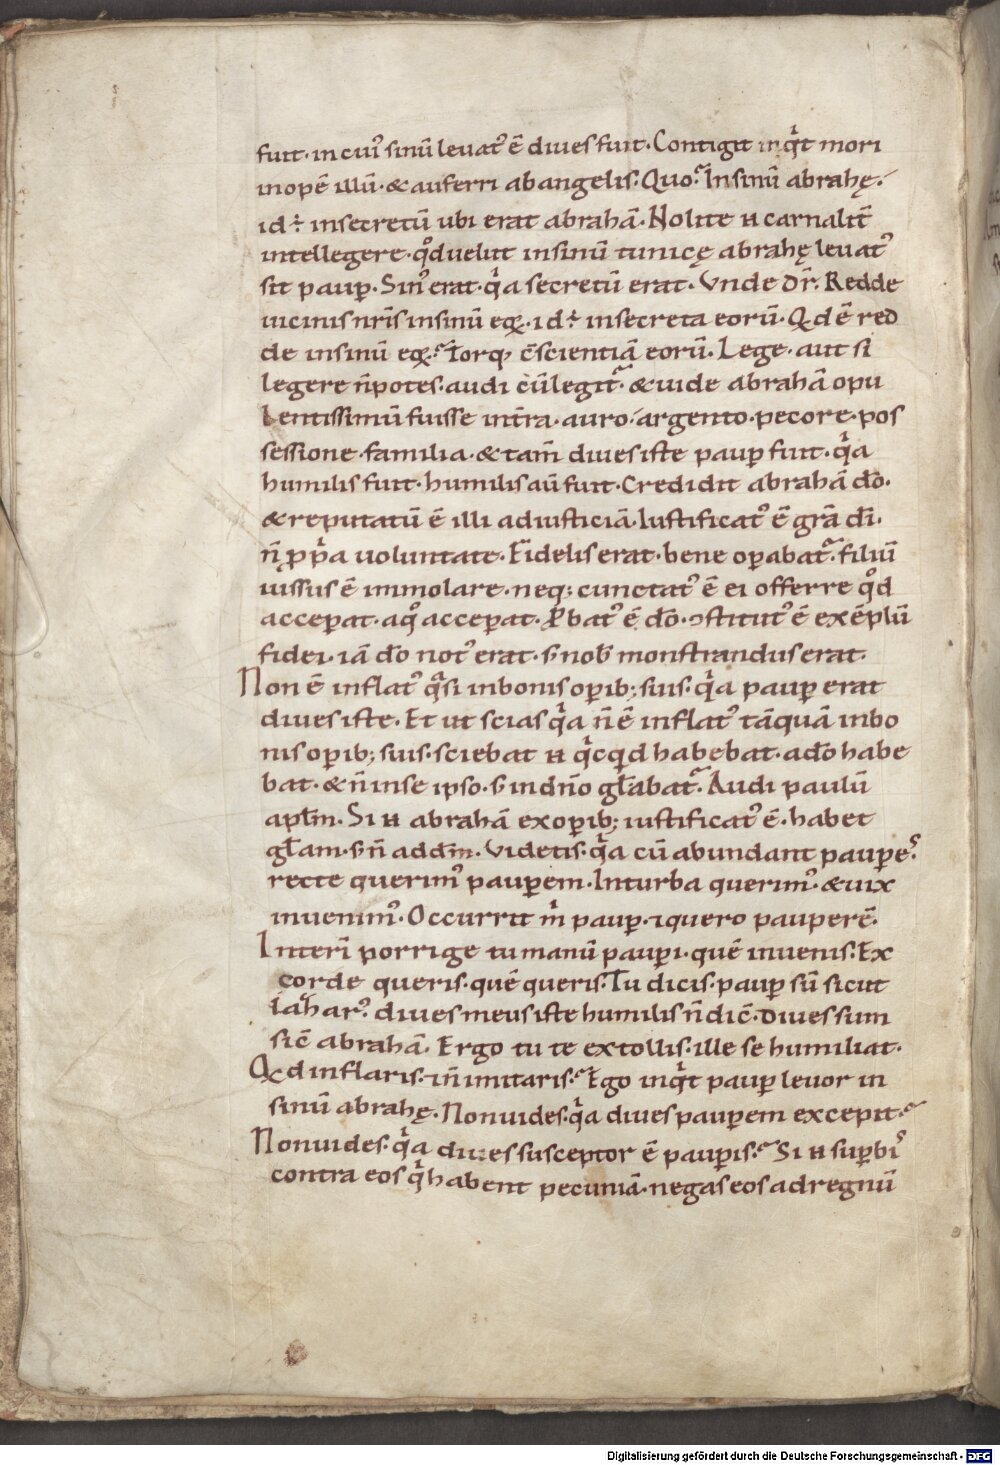 fuit· in cui᾿ sinū leuat᾿ ē diues fuit· Contigit inqͥt mori
inopē illū· & auferri ab angelis· Quo? In sinū abrahę·
id·ē· in secretū ubi erat abrahā· Nolite n̄ carnalit̄
intellegere· qͦd uelut in sinū tunicę abrahę leuat᾿
sit paup̱· Sin᾿ erat· qͥa secretū erat· Vnde dr̄· Redde
uicinis nr̄is in sinū eoꝝ· id·ē· in secreta eorū· Qd ē red
de in sinū eoꝝ? Torq; c̄scientiā eorū· Lege· aut si
legere n̄ potes· audi cū legit᷑· & uide abrahā opu
lentissimū fuisse in t̄ra· auro· argento· pecore· pos
sessione· familia· & tam̄ diues iste paup̱ fuit· qͥa
humilis fuit· humilis aū fuit· Credidit abrahā do̅·
& reputatū ē illi ad iusticiā· Iustificat᾿ ē gr̄a di̅·
n̄ ꝓpͥa uoluntate· Fidelis erat· bene op̱abat᷑· filiū
iussus ē immolare· neq; cunctat᾿ ē ei offerre qͦd
accep̱at· a qͦ accep̱at· Ꝓbat᾿ ē do̅· ꝯstitut᾿ ē exēplū
fidei· iā do̅ not᾿ erat· s; nob̄ monstrandus erat·
Non ē inflat᾿ qͣsi in bonis op̱ib; suis· qͥa paup̱ erat
diues iste· Et ut scias qͥa n̄ ē inflat᾿ tāquā in bo
nis op̱ib; suis· sciebat n̄ qͥcqͥd habebat· a do̅ habe
bat· & n̄ in se ipso· s; in dn̄o gl̄abat᷑· Audi paulū
apl̄m· Si n̄ abrahā ex op̱ib; iustificat᾿ ē· habet
gl̄am· s; n̄ ad dm̄· Videtis· qͥa cū abundant paup̱e᾿s·
recte querim᾿ paup̱em· In turba querim᾿· & uix
inuenim᾿· Occurrit m̄ paup̱· ⁊ quero pauperē·
Interī porrige tu manū paup̱i· quē inuenis· Ex
corde queris· quē queris· Tu dicis· paup̱ sū sicut
lazhar᾿· diues meus iste humilis n̄ dic̄· Diues sum
sic̄ abrahā· Ergo tu te extollis· ille se humiliat·
Qd inflaris· ⁊ n̄ imitaris? Ego inqͥt paup̱ leuor in
sinū abrahę· Non uides· qͥa diues paup̱em excepit?
Non uides· qͥa diues susceptor ē paup̱is? Si n̄ sup̱bi᾿s
contra eos qͥ habent pecuniā· negas eos ad regnū
Digitalisierung gefördert durch die Deutsche Forschungsgemeinschaft · DFG